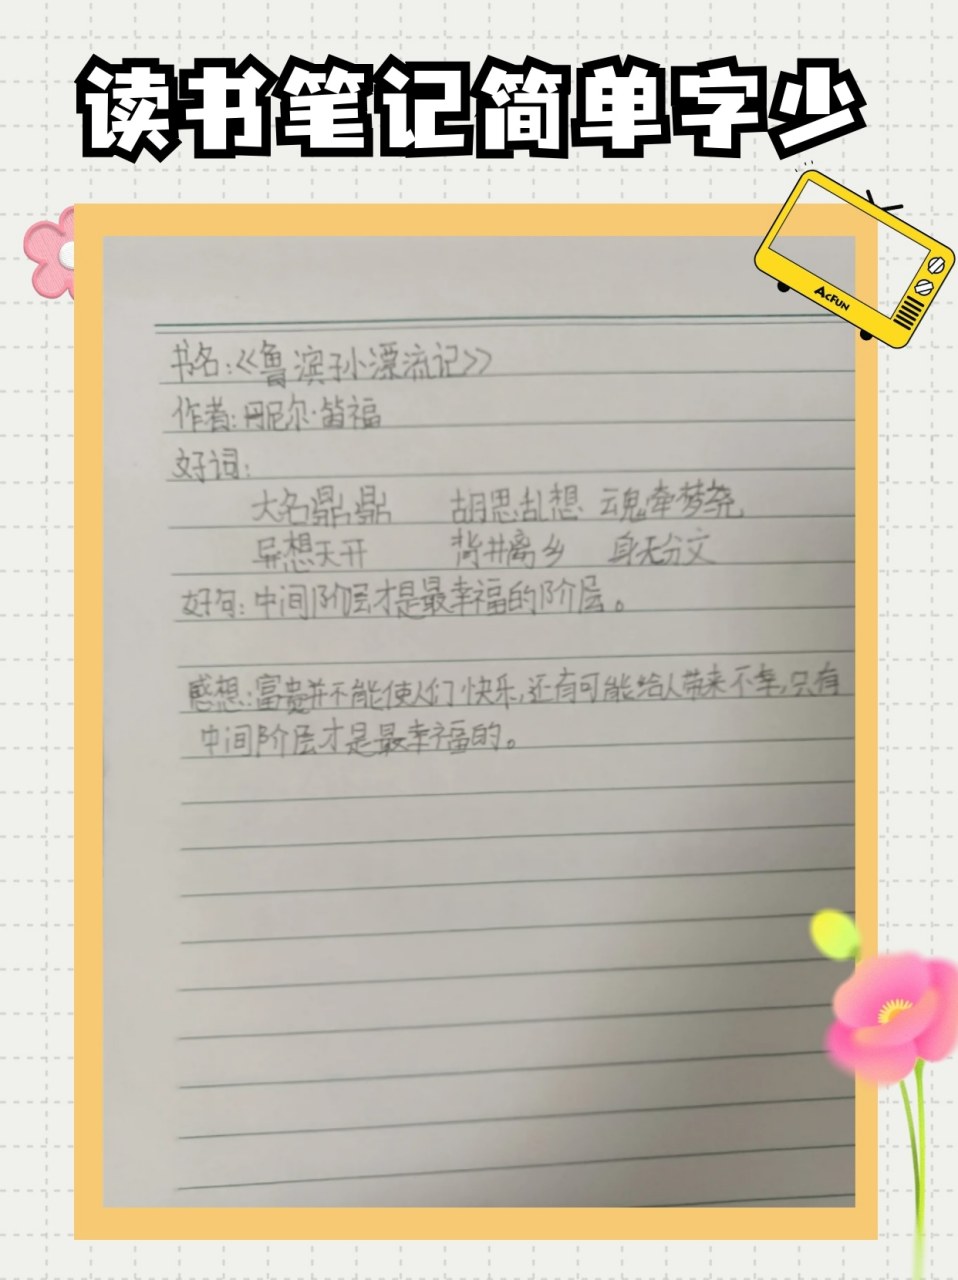 读书笔记简单字少
ACFUN
书名:《鲁滨孙漂流记》
作者:丹尼尔·笛福
好词:
大名鼎鼎 胡思乱想 魂牵梦绕
异想天开 背井离乡 身无分文
好句:中间阶层才是最幸福的阶层。
感想:富贵并不能使人们快乐,还有可能给人带来不幸,只有
中间阶层才是最幸福的。